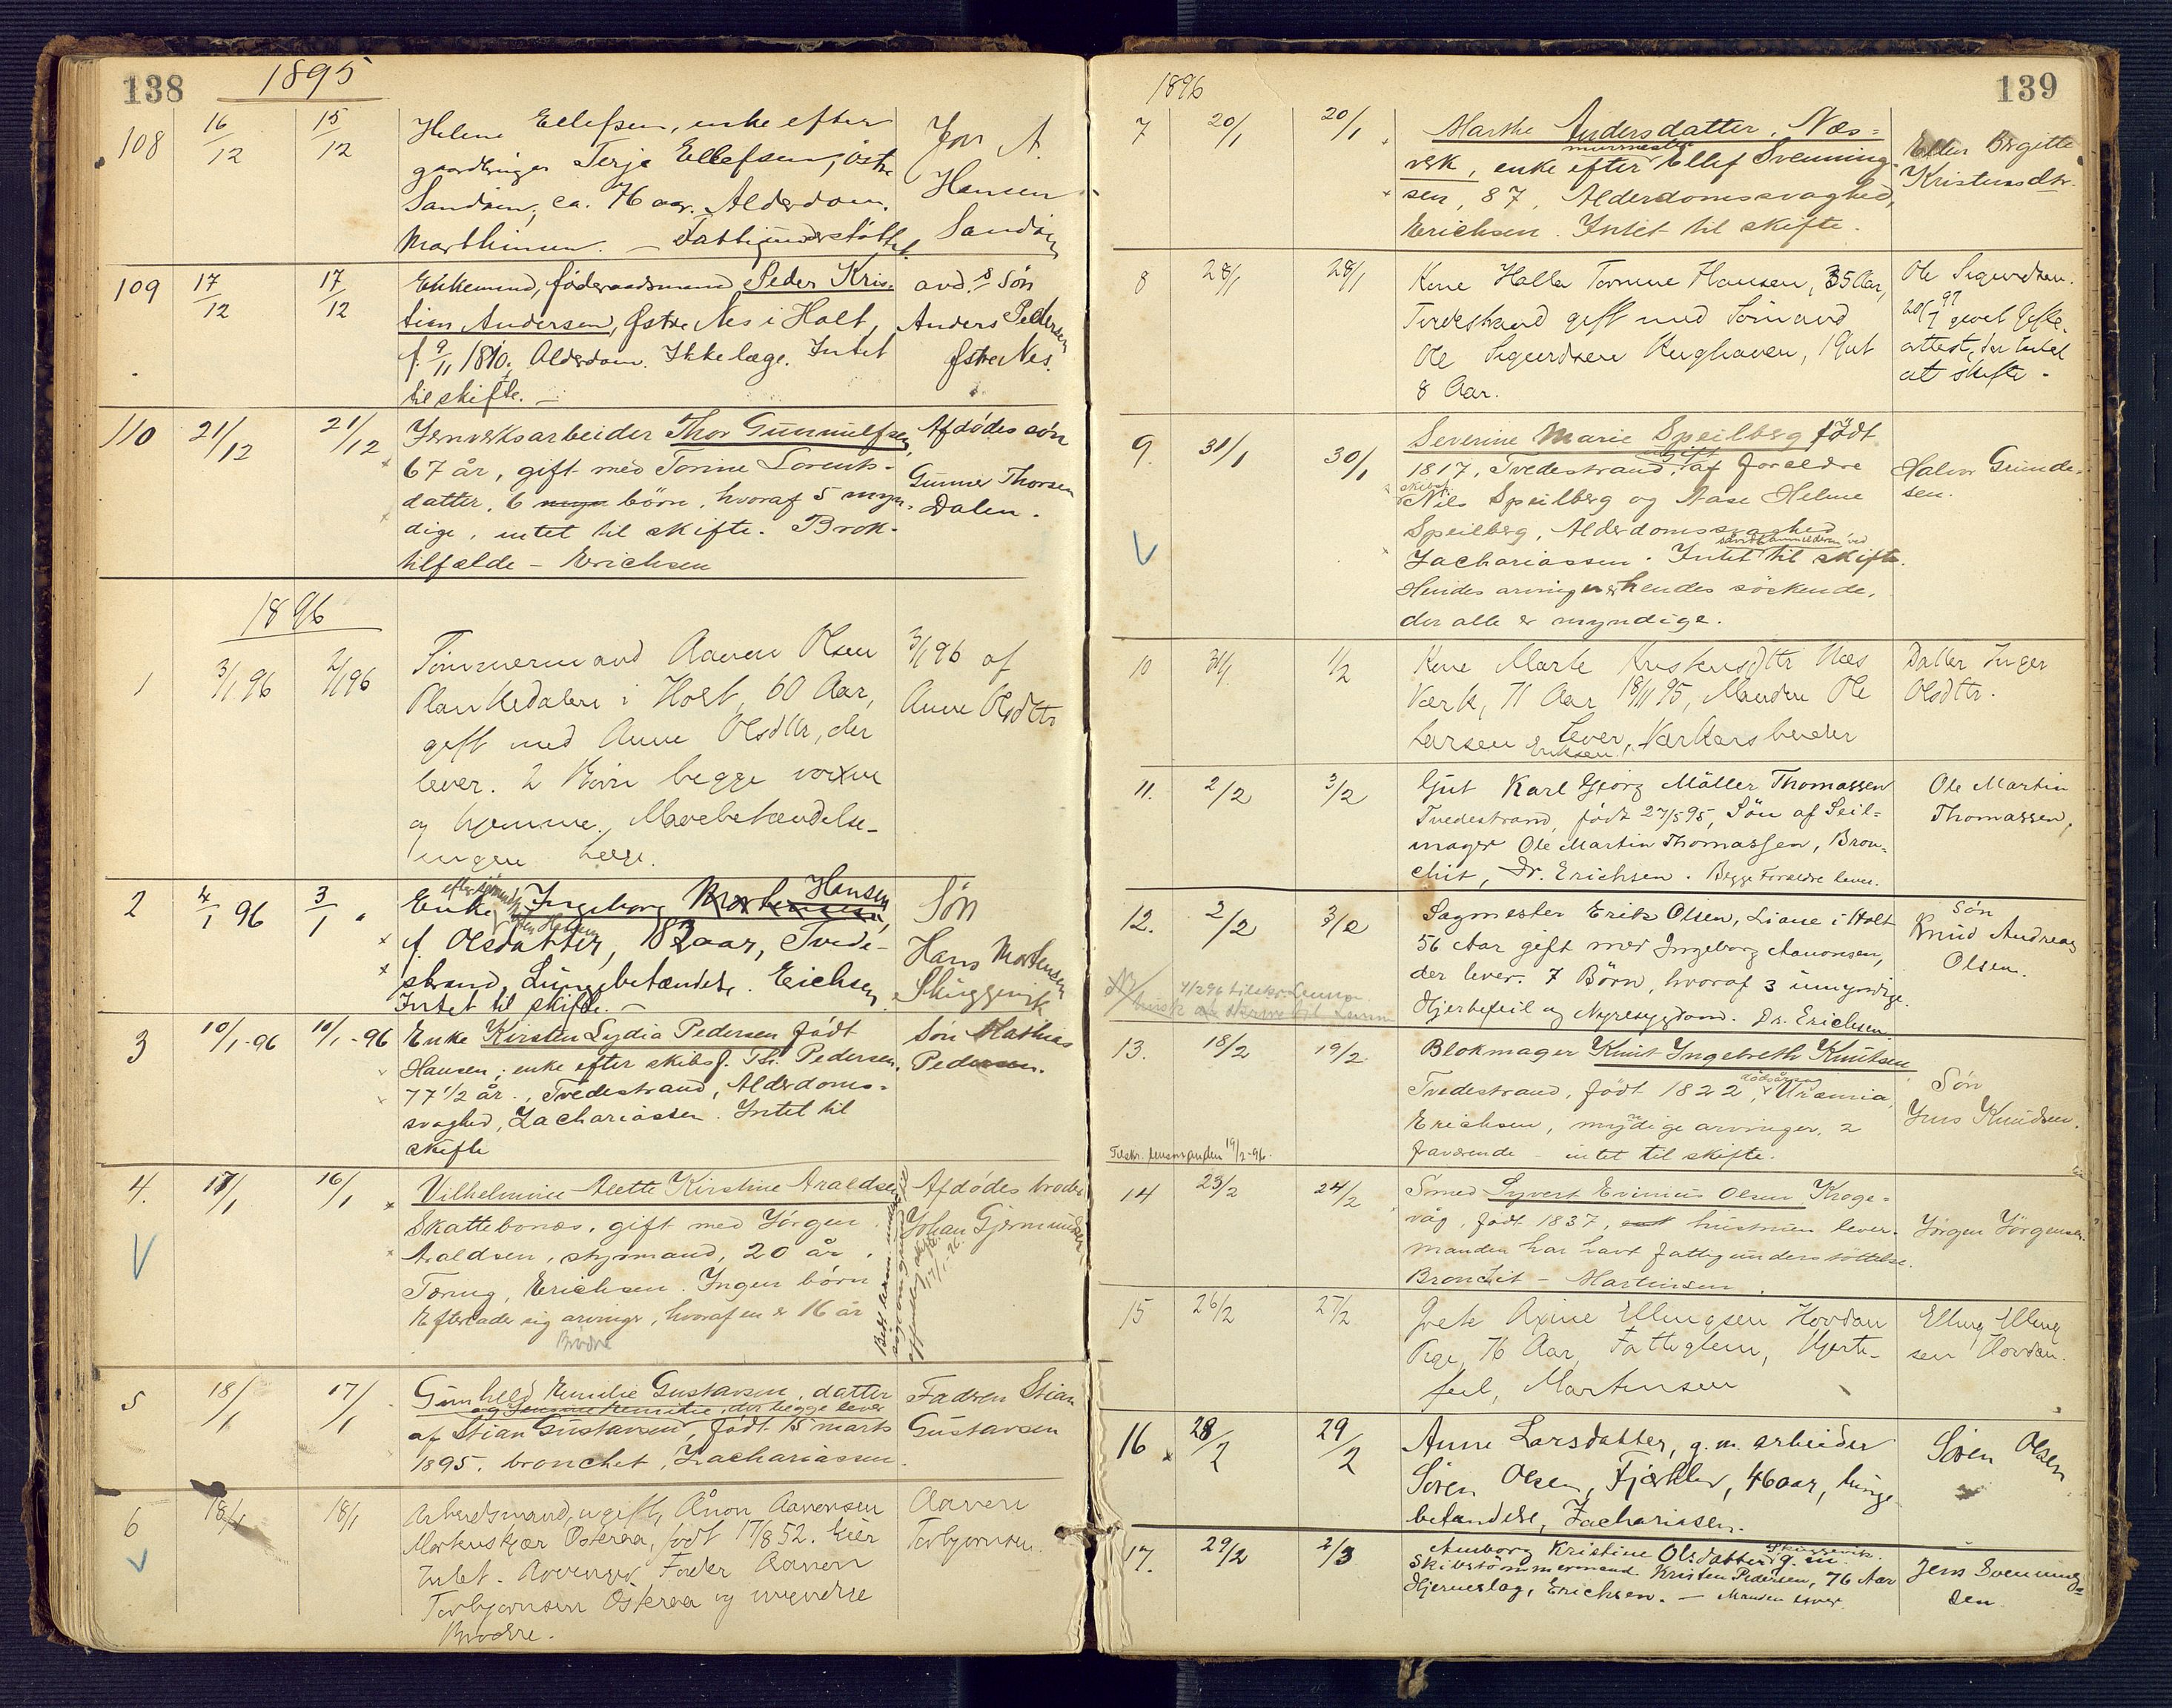 138
1895
108 16/12 15/12 Helene Ellefsen, enke efter
gaardbruger Terje Ellefsen, östre
Sandöen, ca. 76 aar. Alderdom.
Marthinsen. — Fattigunderstöttet.
Jon A.
Hansen
Sandöen
109 17/12 17/12 Enkemand, föderaadsmand Peder Kris-
tian Andersen, Østre Nes i Holt,
f. 9/11 1810. Alderdom. Ikke læge. Intet
til skifte. —
avd.s Sön
Anders Pedersen
Østre Nes.
110 21/12 21/12 Jernverksarbeider Thor Gunnulfsen,
67 år, gift med Tonine Lorents-
datter, 6 börn, hvoraf 5 myn-
dige, intet til skifte. Brok-
tilfælde — Erichsen
Afdödes sön
Gunner Thorsen
Dalen.
1896
1 3/1 96 2/1 96 Tömmermand Aanen Olsen
Plankedalen i Holt, 60 Aar,
gift med Anne Olsdtr, der
lever. 2 Börn begge voxne
og hjemme. Mavebetændelse-
ingen Læge.
3/1 96 af
Anne Olsdtr
2 4/1 96 3/1 Enke efter sjömand Ingeborg Hansen,
f. Olsdatter, 82 aar, Tvede-
strand, Lungebetændelse. Erichsen.
Intet til skifte. —
Sön
Hans Mortensen
Skuggevik
3 10/1-96 10/1-96 Enke Kirsten Lydia Pedersen födt
Hansen; enke efter skibsf. Th. Pedersen,
77 1/2 år., Tvedestrand, Alderdoms-
svaghed, Zachariassen. Intet til
skifte
Sön Mathias
Pedersen.
4. 17/1 16/1 Vilhelmine Alette Kirstine Araldsen
Skattebonæs, gift med Jörgen
Araldsen, styrmand, 20 år.
Tæring, Erichsen. Ingen börn
Efterlader sig arvinger, hvoraf en er 16 år
Brödre
Afdödes broder
Johan Gjermundsen
17/1-96.
5 18/1 17/1 Gunhild Emilie Gustavsen, datter
af Stian Gustavsen, födt 15 marts
der begge lever
1895. bronchit, Zachariassen.
Faderen Stian
Gustavsen
6 18/1 18/1 Arbeidsmand, ugift, Ånon Aanonsen
Morkenskjær Österaa, födt 17/8 52. Eier
Intet. Arvinger Fader Aanen
Torbjornsen Österaa og myndige
Brödre.
Aanen
Torbjornsen.
139
1896
7 20/1 20/1 Marthe Andersdatter. Næs-
verk, enke efter murmester Ellef Svenning-
sen, 87, Alderdomssvaghed,
Erichsen. Intet til skifte.
Ellen Birgitte
Kristensdtr.
8 28/1 28/1 Kone Halla Tomine Hansen, 35 Aar,
Tvedestrand gift med Sömand
Ole Sigurdsen Hughaven, 1 Gut
8 Aar.
Ole Sigurdsen.
attest, der Intet
at skifte.
9. 31/1 30/1 Severine Marie Speilberg födt
1817, Tvedestrand, ugift af foreldre
skibsf. Nils Speilberg og Aase Helene
Speilberg, Alderdomssvaghed,
Zachariassen. Intet til skifte.
såvidt anmelderen ved
Hendes arvinger er hendes söskende,
der alle er myndige.
Halvor Grunde-
sen.
10 31/1 1/2 Kone Marte Kristensdtr Næs
Værk, 71 Aar 18/11 95, Manden Ole
Larsen lever, Værkarbeider
Eriksen.
Datter Inger
Olsdtr.
11. 2/2 3/2 Gut Karl Georg Möller Thomassen
Tvedestrand, födt 27/5 95, Sön af Seil-
mager Ole Martin Thomassen, Bron-
chit, Dr. Erichsen. Begge Foreldre lever.
Ole Martin
Thomassen,
12. 2/2 3/2 Sagmester Erik Olsen, Liane i Holt
56 Aar gift med Ingeborg Aanonsen,
der lever. 7 Börn, hvoraf 3 umyndige.
Hjertefeil og Nyresygdom. Dr. Erichsen.
Sön
Knud Andreas
Olsen.
13. 18/2 19/2 Blokmager Knut Ingebreth Knutsen,
Tvedestrand, födt 1822, Uræmia,
Erichsen, myndige arvinger, 2
fraværende — intet til skifte.
Sön
Jens Knudsen.
Tilskr. lensmanden 19/2-96.
14 23/2 24/2 Smed Syvert Evinius Olsen Kroge-
våg, födt 1837, hustruen lever.
manden har havt fattigunderstöttelse.
Bronchit — Martinsen.
Jörgen Jörgensen.
15 26/2 27/2 Grete Axine Ellingsen Hovdan
Pige, 76 Aar, Fattiglem, Hjerte-
feil, Martensen
Elling Elling
sen Hovdan.
16 28/2 29/2 Anne Larsdatter, g. m. arbeider
Sören Olsen, Fjærkler, 46 aar, lunge-
betændelse, Zachariasen.
Sören Olsen
17. 29/2 2/3 Amborg Kristine Olsdatter, g. m.
Skibstömmermand Kristen Pedersen, 76 Aar
Hjerneslag, Erichsen. — Manden lever.
Jens Svenning-
sen